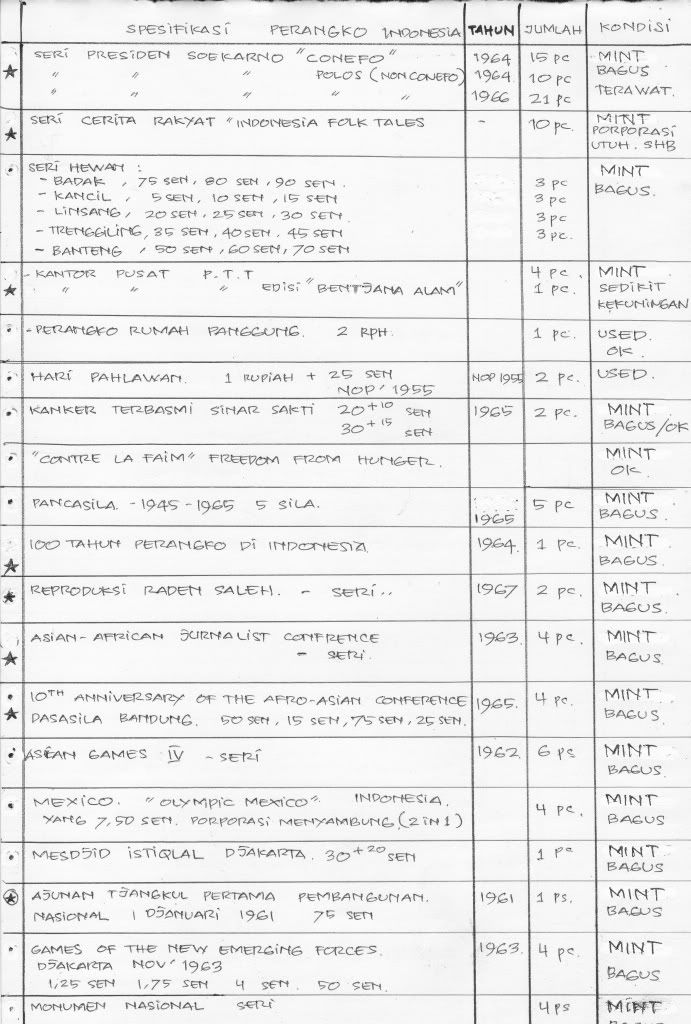 SPESIFIKASI PERANGKO INDONESIA TAHUN JUMLAH KONDISI
SERI PRESIDEN SOEKARNO "CONEFO" 1964 15 pc MINT
" " " POLOS (NON CONEFO) 1964. 10 pc BAGUS
" " " " " 1966 21 pc TERAWAT.
SERI CERITA RAKYAT "INDONESIA FOLK TALES - 10 pc. MINT
PORPORASI
UTUH. SHB
SERI HEWAN : MINT
- BADAK , 75 SEN, 80 SEN, 90 SEN. 3 pc BAGUS.
- KANCIL , 5 SEN, 10 SEN, 15 SEN 3 pc
- LINSANG, 20 SEN, 25 SEN, 30 SEN. 3 pc
- TRENGGILING, 35 SEN, 40 SEN, 45 SEN 3 pc.
- BANTENG , 50 SEN, 60 SEN, 70 SEN
- KANTOR PUSAT P.T.T 4 pc. MINT
" " " EDISI "BENTJANA ALAM" 1 pc. SEDIKIT
KEKUNINGAN
- PERANGKO RUMAH PANGGUNG. 2 RPH. 1 pc. USED.
OK.
HARI PAHLAWAN. 1 RUPIAH + 25 SEN NOP 1955 2 pc. USED.
NOP' 1955
KANKER TERBASMI SINAR SAKTI 20+10 SEN 1965 2 pc. MINT
30+15 SEN BAGUS/OK
"CONTRE LA FAIM" FREEDOM FROM HUNGER. MINT
OK.
PANCASILA. - 1945 - 1965 5 SILA. 5 pc MINT
1965 BAGUS.
100 TAHUN PERANGKO DI INDONESIA. 1964. 1 pc. MINT
BAGUS.
REPRODUKSI RADEN SALEH. - SERI.. 1967 2 pc. MINT
BAGUS.
ASIAN-AFRICAN JURNALIST CONFRENCE 1963. 4 pc. MINT
- SERI. BAGUS.
10TH ANNIVERSARY OF THE AFRO-ASIAN CONFERENCE 1965. 4 pc. MINT
DASASILA BANDUNG. 50 SEN, 15 SEN, 75 SEN, 25 SEN. BAGUS.
ASEAN GAMES IV - SERI 1962 6 ps MINT
BAGUS.
MEXICO. "OLYMPIC MEXICO". INDONESIA. 4 pc. MINT
YANG 7,50 SEN. PORPORASI MENYAMBUNG. (2 IN 1) BAGUS
MESDJID ISTIQLAL DJAKARTA. 30+20 SEN 1 pc MINT
BAGUS
AJUNAN TJANGKUL PERTAMA PEMBANGUNAN. 1961 1 ps. MINT
NASIONAL 1 DJANUARI 1961 75 SEN BAGUS
GAMES OF THE NEW EMERGING FORCES. 1963. 4 pc. MINT
DJAKARTA NOV' 1963 BAGUS
1,25 SEN 1,75 SEN 4 SEN. 50 SEN.
MONUMEN NASIONAL SERI 4 ps MINT